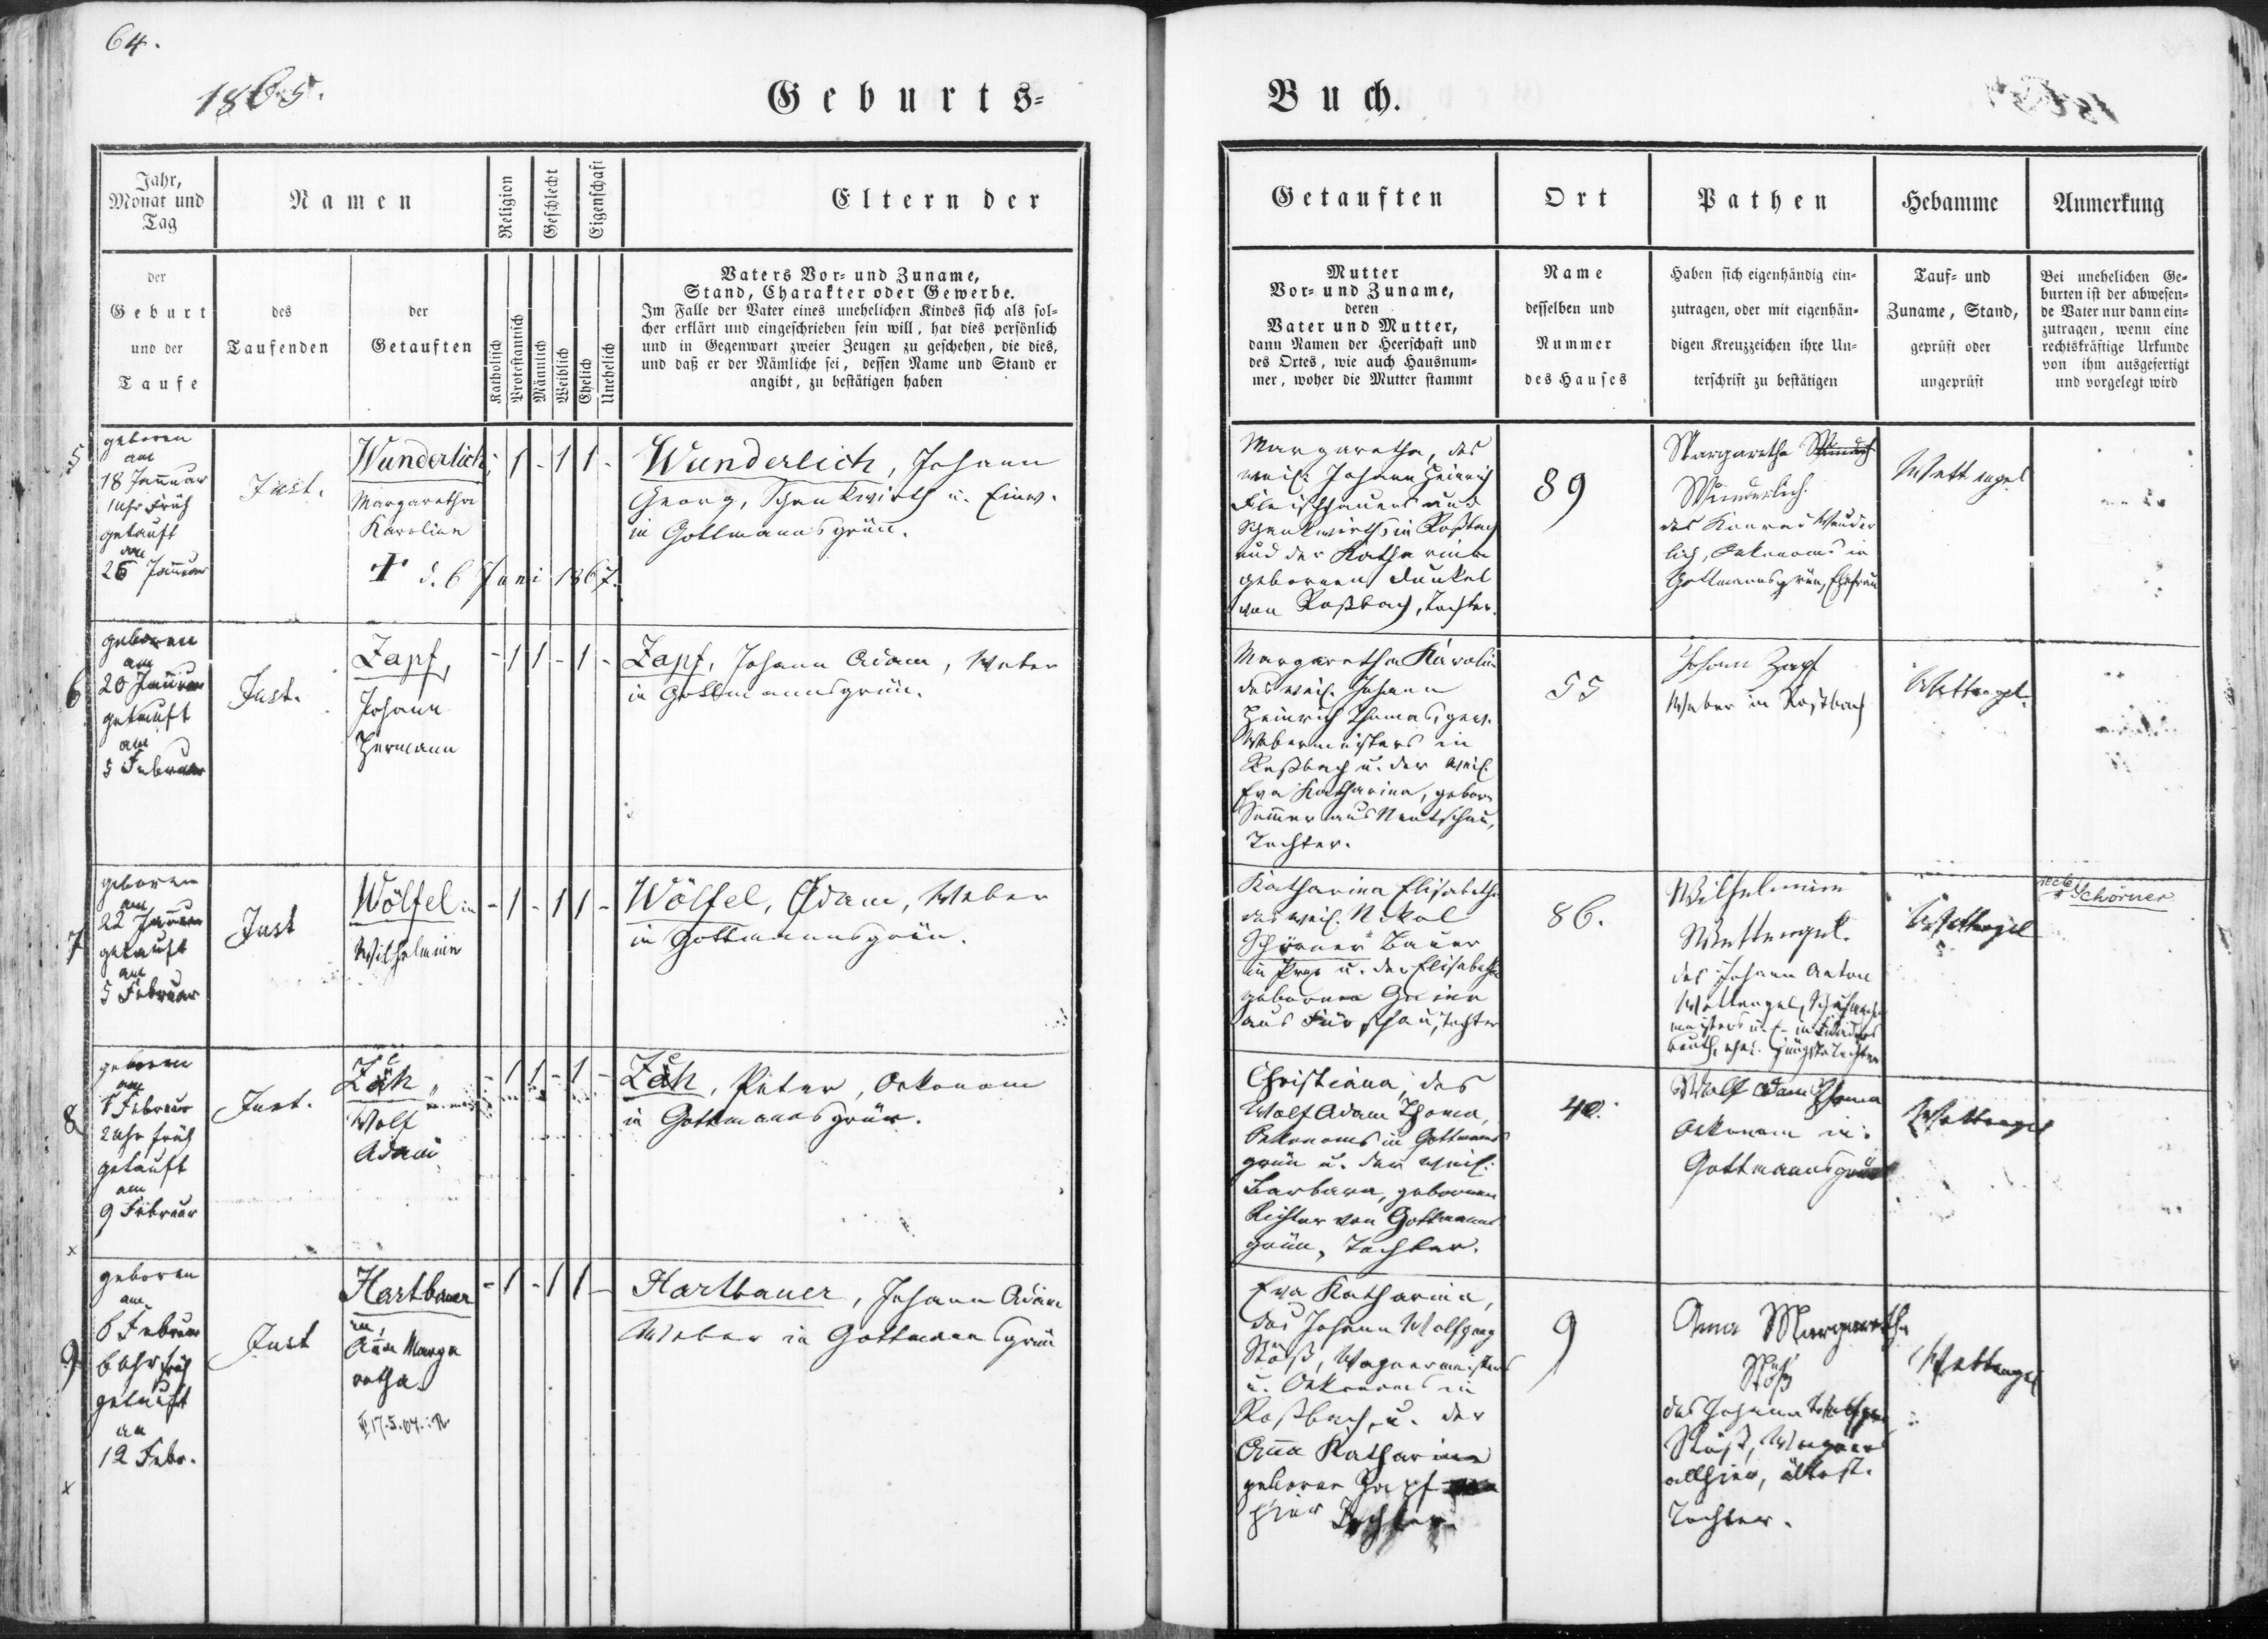 64.
1865.
Geburts-
Buch.
Jahr,
Monat und
Tag
Namen
Religion
Geschlecht
Eigenschaft
Eltern der
der
Geburt
und der
Taufe
des
Taufenden
der
Getauften
Katholisch
Protestantisch
Männlich
Weiblich
Ehelich
Unehelich
Vaters Vor- und Zuname,
Stand, Charakter oder Gewerbe.
Im Falle der Vater eines unehelichen Kindes sich als sol-
cher erklärt und eingeschrieben sein will, hat dies persönlich
und in Gegenwart zweier Zeugen zu geschehen, die dies,
und daß er der Nämliche sei, dessen Name und Stand er
angibt, zu bestätigen haben
Getauften
Ort
Pathen
Hebamme
Anmerkung
Mutter
Vor- und Zuname,
deren
Vater und Mutter,
dann Namen der Heerschaft und
des Ortes, wie auch Hausnum-
mer, woher die Mutter stammt
Name
desselben und
Nummer
des Hauses
Haben sich eigenhändig ein-
zutragen, oder mit eigenhän-
digen Kreuzzeichen ihre Un-
terschrift zu bestätigen
Tauf- und
Zuname, Stand,
geprüft oder
ungeprüft
Bei unehelichen Ge-
burten ist der abwesen-
de Vater nur dann ein-
zutragen, wenn eine
rechtskräftige Urkunde
von ihm ausgefertigt
und vorgelegt wird
5
geboren
am
18 Januar
1 Uhr Früh
getauft
am
26 Januar
Just.
Wunderlich
Margaretha
Karolina
+ d. 6 Juni 1867.
- 1 - 1 1 -
Wunderlich, Johann
Georg, Schenkwirth u. Einw.
in Gottmannsgrün.
Margaretha, des
weil. Johann Heinrich
Fleischhauers und
Schenkwirths in Roßbach
und der Katharina
gebornen Dunkel
von Roßbach, Tochter.
89
Margaretha
Wunderlich.
des Konrad Wunder
lich, Oekonoms in
Gottmannsgrün, Ehefrau
Wettengel
6
geboren
am
20 Januar
getauft
am
5 Februar
Just.
Zapf,
Johann
Hermann
- 1 1 - 1 -
Zapf, Johann Adam, Weber
in Gottmannsgrün.
Margaretha Karolin
des weil. Johann
Heinrich Thomas, gew.
Webermeisters in
Roßbach u. der weil.
Eva Katharina, geborn
Sommer aus
Tochter.
55
Johann Zapf
Weber in Roßbach
Wettengel
7
geboren
am
22 Januar
getauft
am
5 Februar
Just
Wölfel in
Wilhelmine
- 1 - 1 1 -
Wölfel, Adam, Weber
in Gottmannsgrün.
Katharina Elisabetha
des weil. Nikol
Schörner Bauer
in Prex u. der Elisabetha
gebornen
aus Tochter
86.
Wilhelmine
Wettengel.
des Johann Anton
Wettengel, Schuhmacher
meisters
Wettengel
Schörner
8
geboren
am
Februar
2 Uhr früh
getauft
am
9 Februar
Just.
Zäh
Wolf
Adam
- 1 1 - 1 -
Zäh, Peter, Oekonom
in Gottmannsgrün.
Christiana, des
Wolf Adam Thoma,
Oekonoms in Gottmanns
grün u. der weil.
Barbara, gebornen
Richter von Gottmanns
grün, Tochter.
40.
Wolf Adam Thoma
Oekonom in
Gottmannsgrün
Wettengel
9
geboren
am
6 Februar
6 Uhr früh
getauft
am
12 Febr.
Just
Hartbauer
in,
Anna Marga
retha.
- 1 - 1 1 -
Hartbauer, Johann Adam
Weber in Gottmannsgrün
Eva Katharina,
des Johann Wolfgang
Stöß, Wagnermeisters
u. Oekonoms in
Roßbach, u. der
Anna Katharina
geboren Zapf
hier Tochter.
9
Anna Margaretha
Stöß
des Johann Wolfgang
Stöß, Wagner
allhier, ältest.
Tochter.
Wettengel